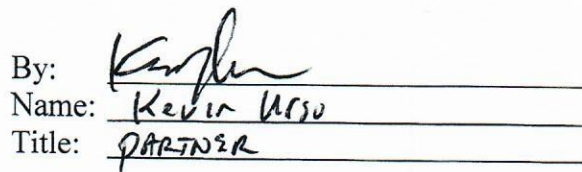 By:
Name: Kevin Urso
Title: PARTNER